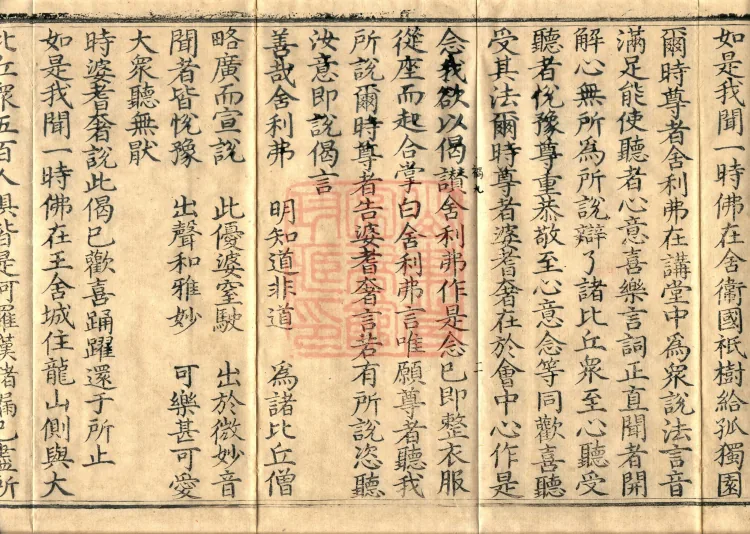 如是我聞一時佛在舍衞國祇樹給孤獨園
爾時尊者舍利弗在講堂中為衆說法言音
滿足能使聽者心意喜樂言詞正直聞者開
解心無所為所說辯了諸比丘衆至心聽受
聽者悅豫尊重恭敬至心意念等同歡喜聽
受其法爾時尊者婆耆奢在於會中心作是
念我欲以偈讃舍利弗作是念已即整衣服
從座而起合掌白舍利弗言唯願尊者聽我
所說爾時尊者告婆耆奢言若有所說恣聽
汝意即說偈言
善哉舍利弗 明知道非道 為諸比丘僧
略廣而宣說 此優婆室駛 出於微妙音
聞者皆悅豫 出聲和雅妙 可樂甚可愛
大衆聽無猒
時婆耆奢說此偈已歡喜踊躍還于所止
如是我聞一時佛在王舍城住龍山側與大
比丘衆五百人俱皆是阿羅漢諸漏已盡所